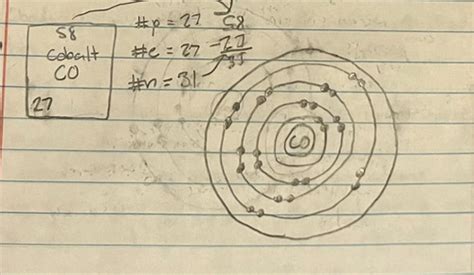 58
cobalt
CO
27
#p = 27
#e = 27
#n = 31
58
-27
31
CO